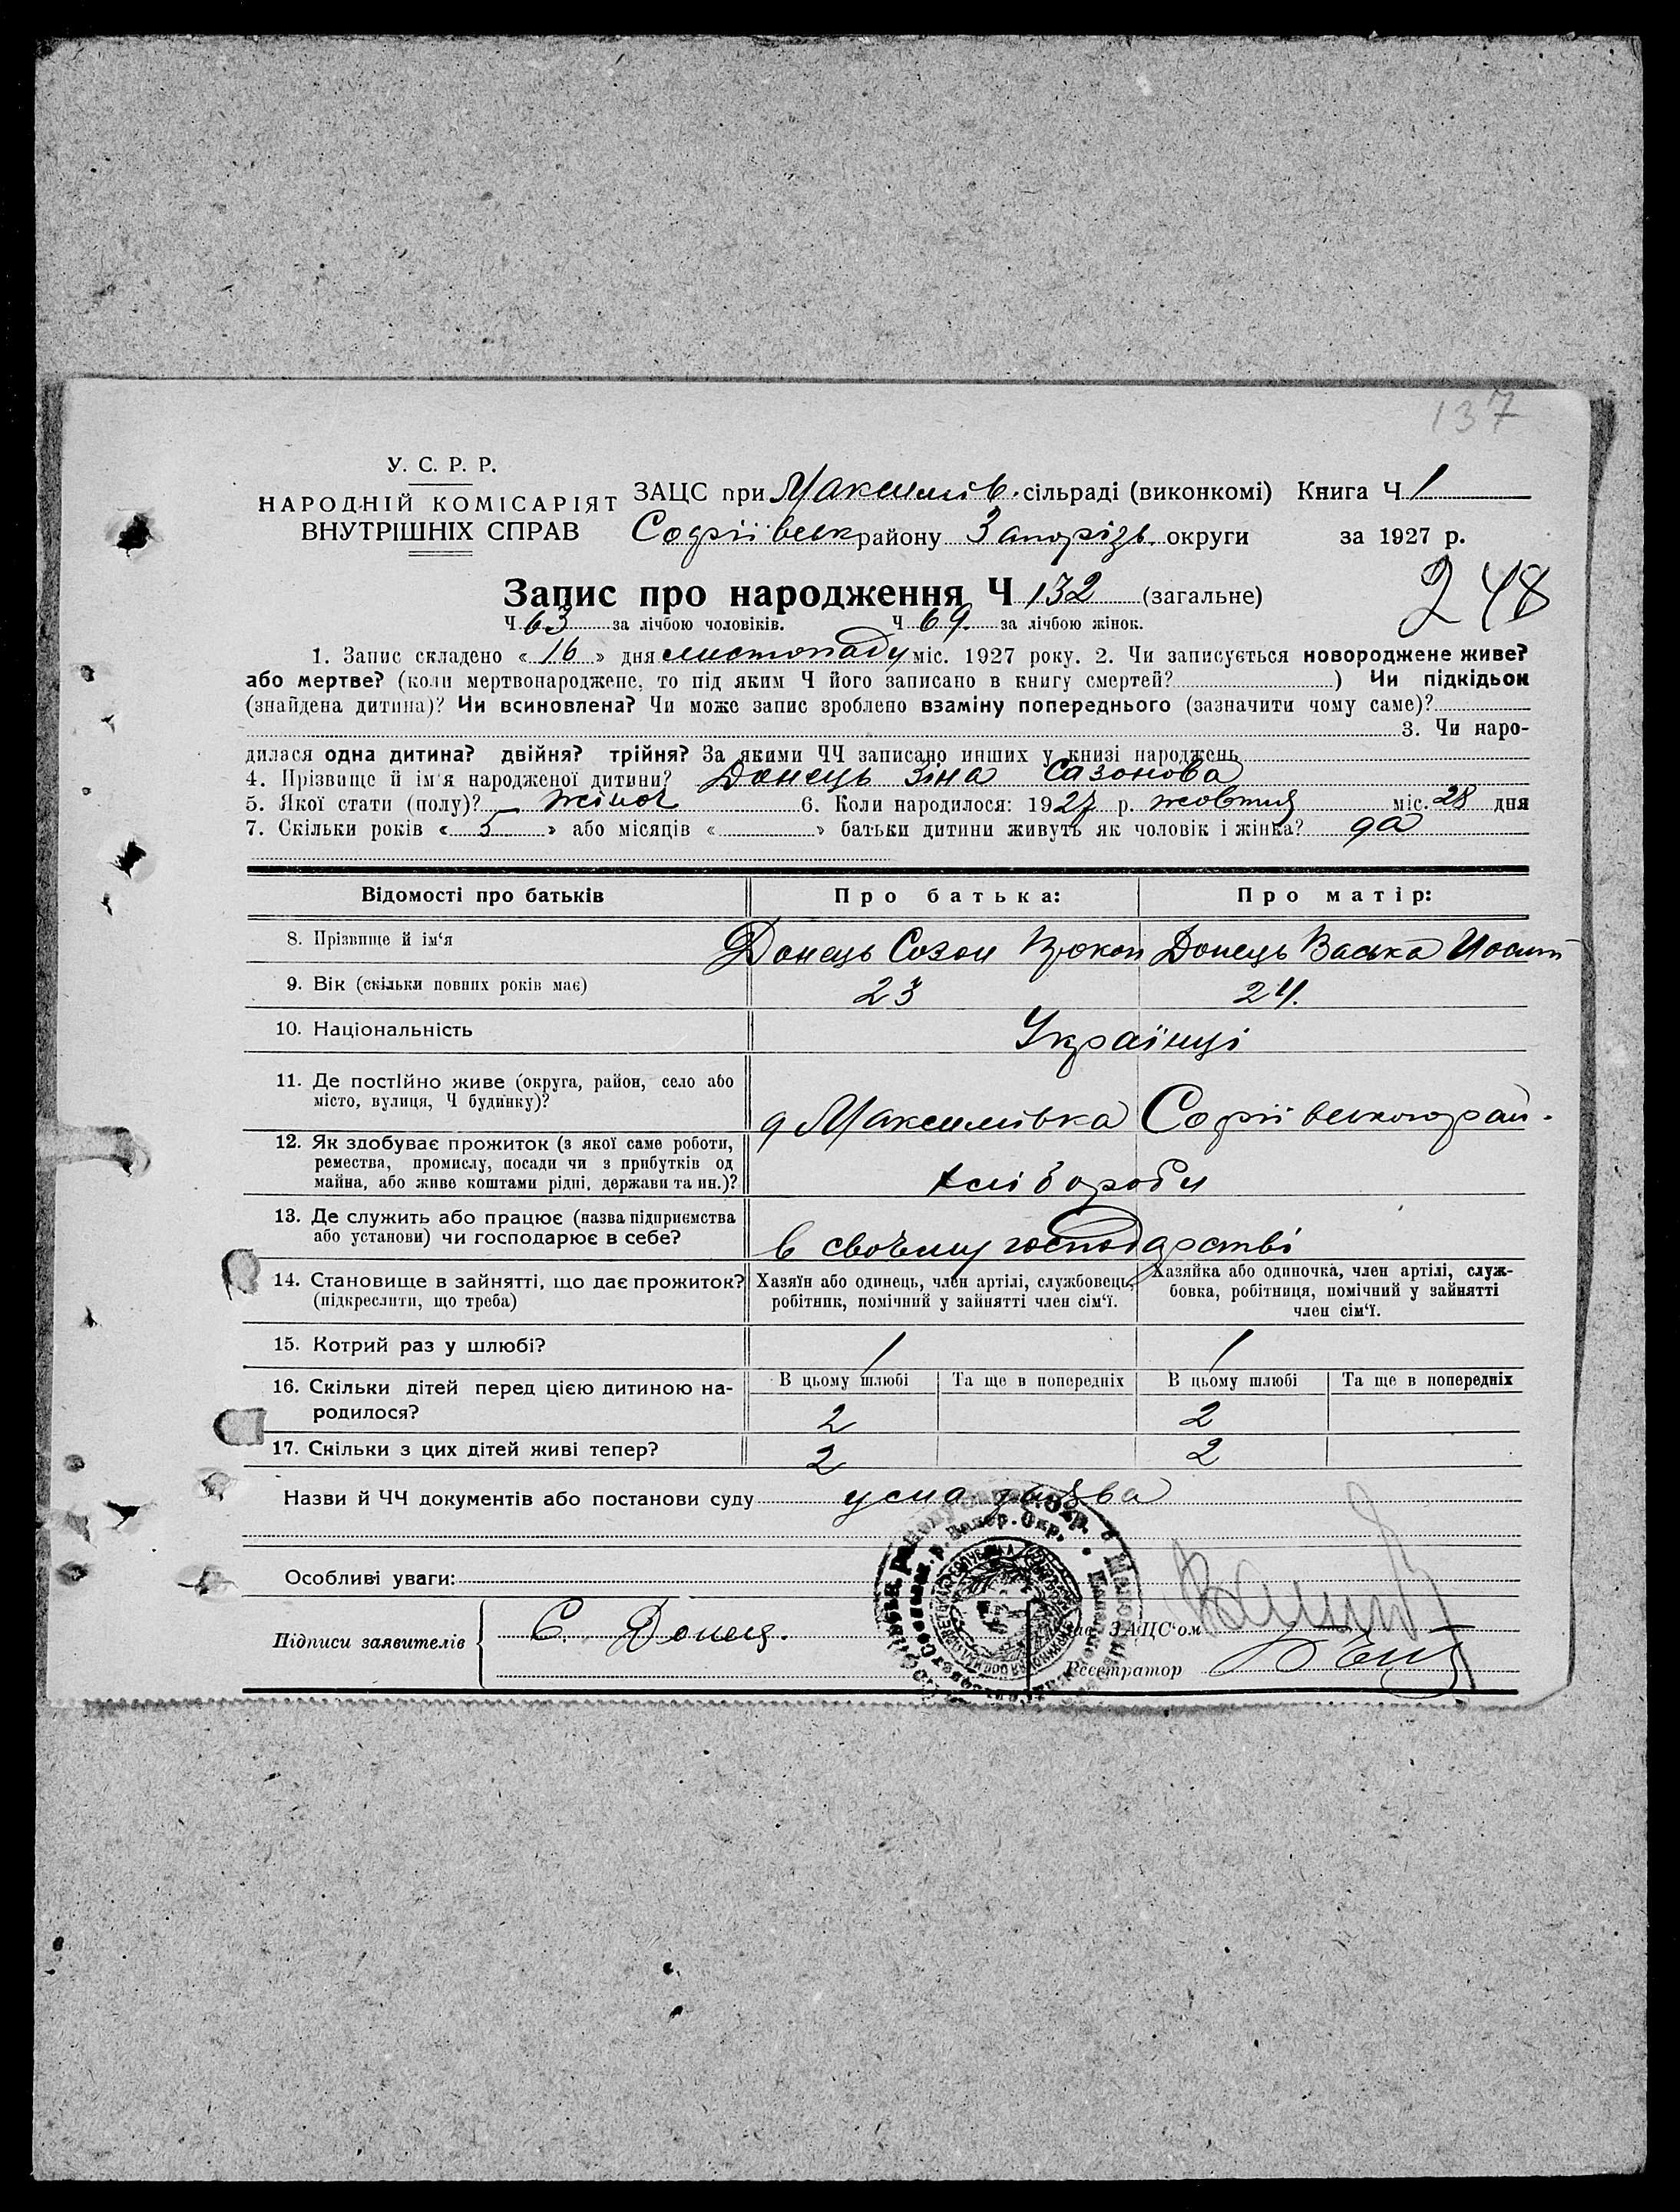 137
У. С. Р. Р.
НАРОДНІЙ КОМІСАРІЯТ
ВНУТРІШНІХ СПРАВ
ЗАЦС при Максимів. сільраді (виконкомі) Книга Ч 1
Софіївськ району Запорізь. округи за 1927 р.
Запис про народження Ч 132 (загальне)
248
Ч 63 за лічбою чоловіків. Ч 69. за лічбою жінок.
1. Запис складено « 16 » дня листопаду міс. 1927 року. 2. Чи записується новороджене живе?
або мертве? (коли мертвонароджене, то під яким Ч його записано в книгу смертей? ) Чи підкідьок
(знайдена дитина)? Чи всиновлена? Чи може запис зроблено взаміну попереднього (зазначити чому саме)?
3. Чи наро-
дилася одна дитина? двійня? трійня? За якими ЧЧ записано инших у книзі народжень
4. Прізвище й ім'я народженої дитини? Донець Зіна Сазонова
5. Якої стати (полу)? жіноч 6. Коли народилося: 1927 р. жовтня міс. 28 дня
7. Скільки років « 5 » або місяців « » батьки дитини живуть як чоловік і жінка? да
Відомості про батьків Про батька: Про матір:
8. Прізвище й ім'я Донець Созон Донець Васька Йосип
9. Вік (скільки повних років має) 23 24.
10. Національність Українці
11. Де постійно живе (округа, район, село або
місто, вулиця, Ч будинку)?
д Максимівка Софіївського рай.
12. Як здобуває прожиток (з якої саме роботи,
ремества, промислу, посади чи з прибутків од
майна, або живе коштами рідні, держави та ин.)?
хлібороби
13. Де служить або працює (назва підприємства
або установи) чи господарює в себе?
в своєму господарстві
14. Становище в зайнятті, що дає прожиток?
(підкреслити, що треба)
Хазяїн або одинець, член артілі, службовець,
робітник, помічний у зайнятті член сім'ї.
Хазяйка або одиночка, член артілі, служ-
бовка, робітниця, помічний у зайнятті
член сім'ї.
15. Котрий раз у шлюбі? 1 1
16. Скільки дітей перед цією дитиною на-
родилося?
В цьому шлюбі Та ще в попередніх В цьому шлюбі Та ще в попередніх
2 2
17. Скільки з цих дітей живі тепер? 2 2
Назви й ЧЧ документів або постанови суду усна заява
Особливі уваги:
Підписи заявителів С. Донец.
Зав. ЗАЦС'ом
Реєстратор